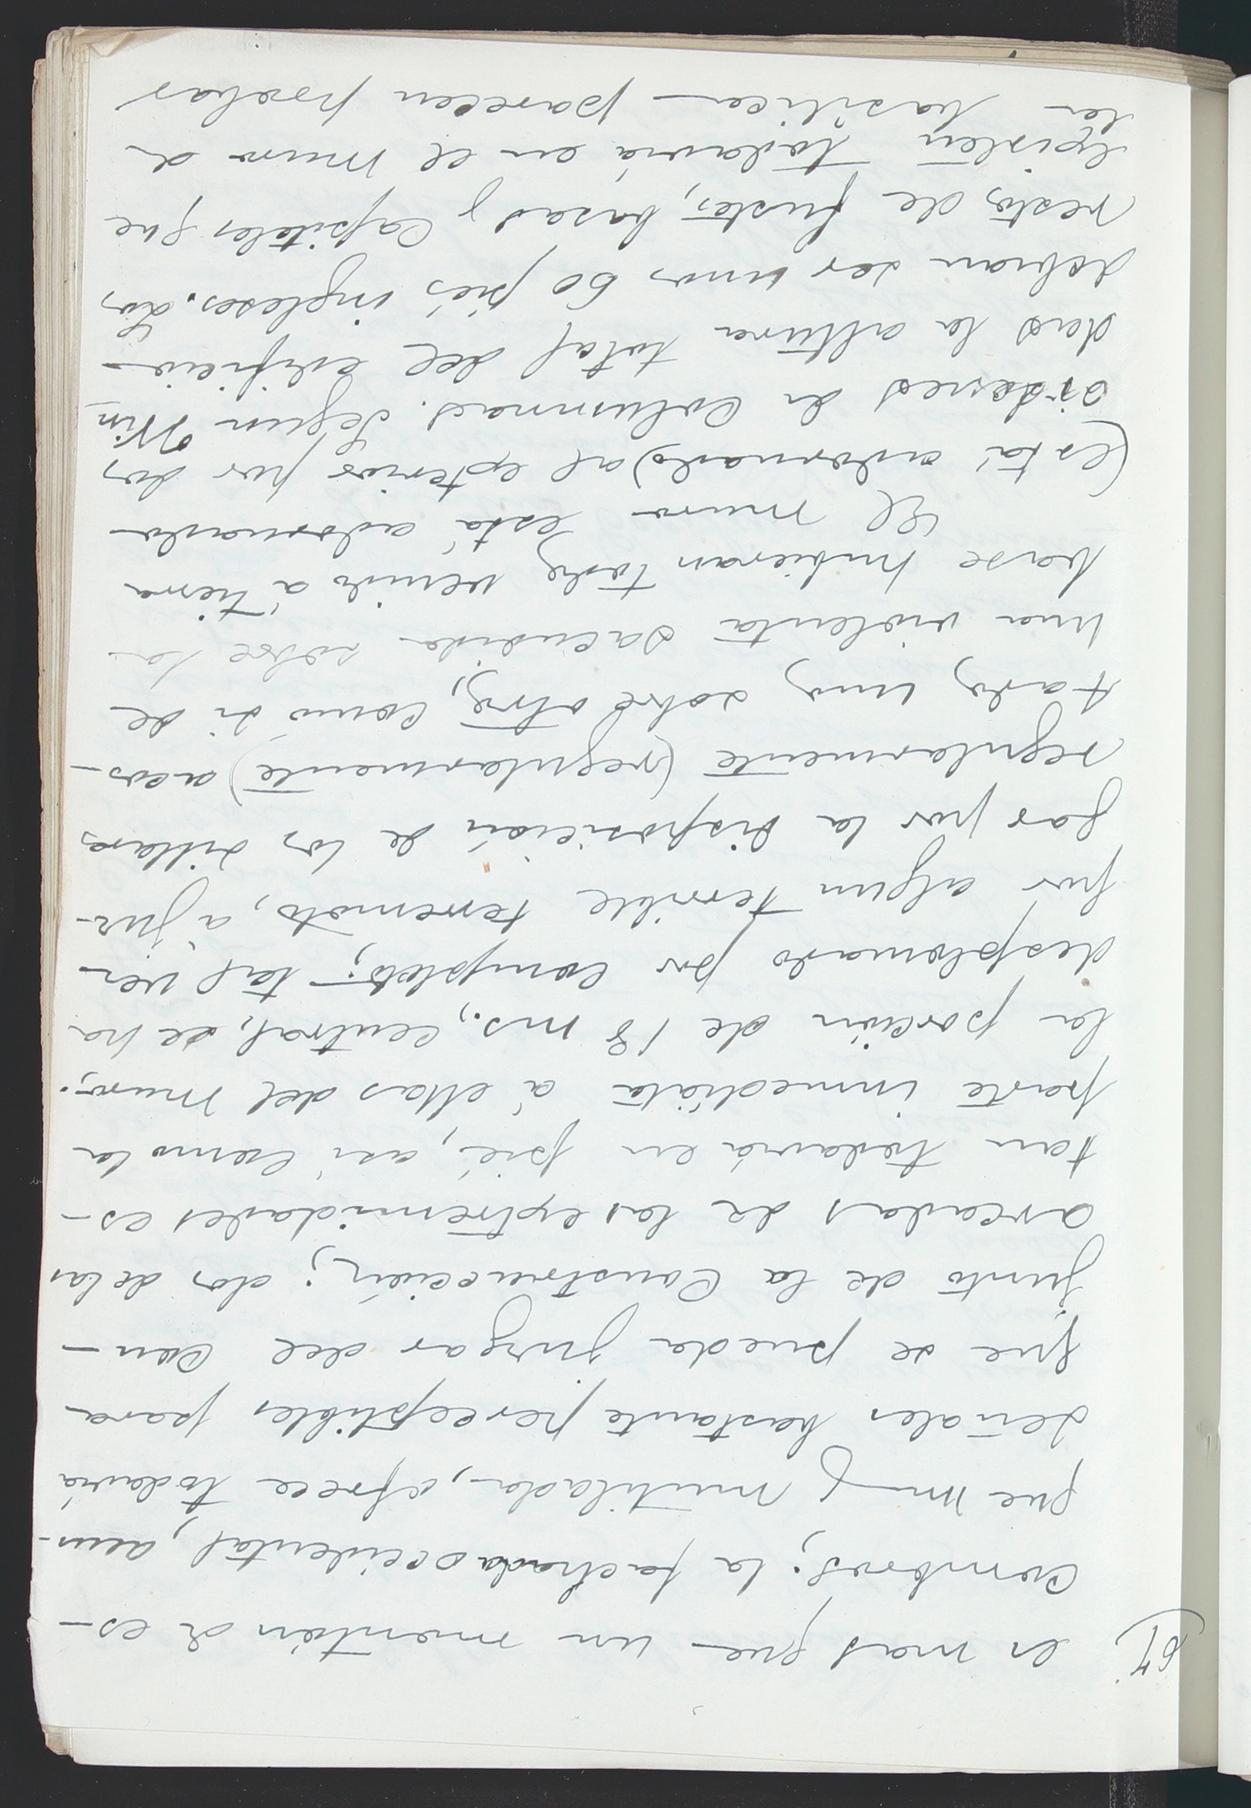 67
es mas que un montón de es-
combros; la fachada occidental, aun-
que muy mutilada, ofrece todavia
señales bastante perceptibles para
que se pueda juzgar del con-
junto de la Construcción; dos de las
arcadas de las extremidades es-
tan todavía en pié, asi como la
parte inmediata á ellas del muro;
la porción de 18 ms., central, se ha
desplomado por completo; tal vez
por algun terrible terremoto, á juz-
gar por la disposición de los sillares
regularmente (regularmente) acos-
tados unos sobre otros, como si de
una violenta sacudida sobre la
base hubieran todos venido á tierra
El muro está adornado
(está adornado) al exterior por dos
ordenes de Columnas. Segun Win-
dus la altura total del edificio
debian ser unos 60 piés ingleses. Los
restos de fustes, basas y Capiteles que
existen todavia en el muro de
la basilica parecen probar